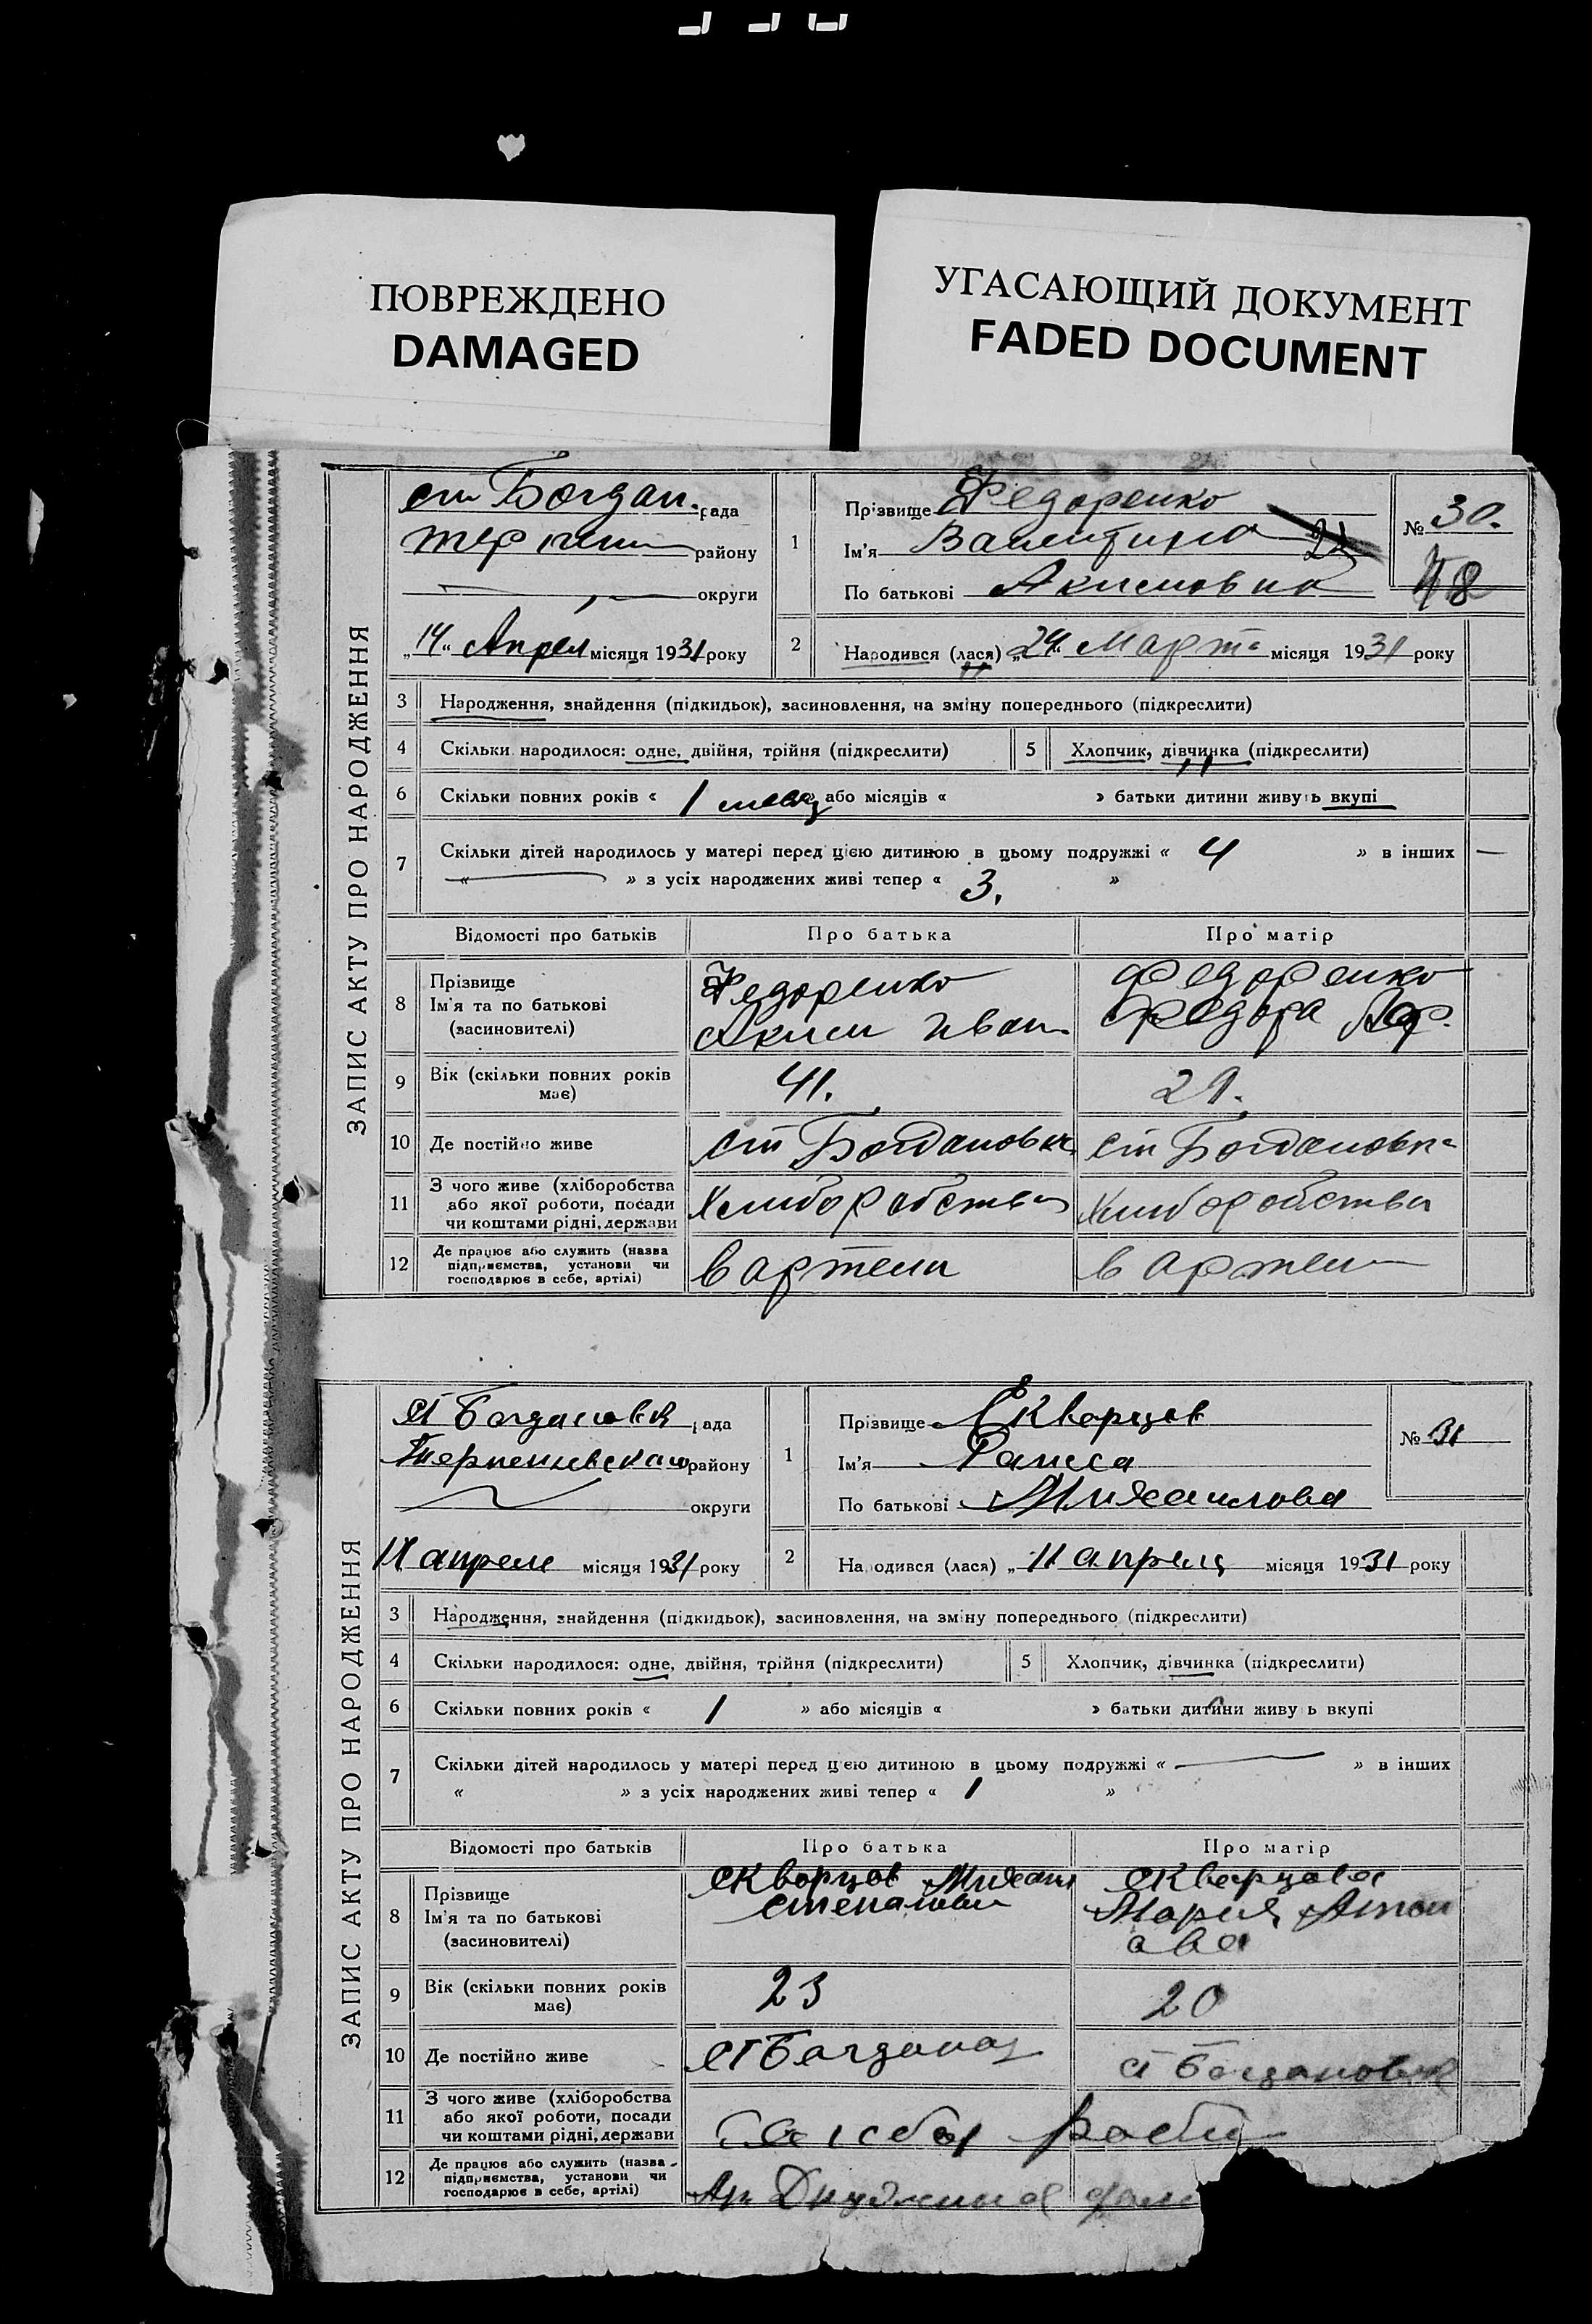 ПОВРЕЖДЕНО
DAMAGED
УГАСАЮЩИЙ ДОКУМЕНТ
FADED DOCUMENT
ЗАПИС АКТУ ПРО НАРОДЖЕННЯ
ст Богдан. рада
району
округи
„14“ Апрел місяця 1931 року
1
Прізвище Федоренко
Ім'я Валентина
По батькові Акимовна
21
№ 30.
48
2
Народився (лася) „24“ Марта місяця 1931 року
3 Народження, знайдення (підкидьок), засиновлення, на зміну попереднього (підкреслити)
4 Скільки народилося: одне, двійня, трійня (підкреслити) 5 Хлопчик, дівчинка (підкреслити)
6 Скільки повних років « 1 месяц » або місяців « » батьки дитини живуть вкупі
7 Скільки дітей народилось у матері перед цією дитиною в цьому подружжі « 4 » в інших —
« — » з усіх народжених живі тепер « 3. »
Відомості про батьків Про батька Про матір
8 Прізвище
Ім'я та по батькові
(засиновителі)
Федоренко
Аким Иван
Федоренко
Федора
9 Вік (скільки повних років має) 41. 29.
10 Де постійно живе ст Богдановка ст Богдановка
11 З чого живе (хліборобства або якої роботи, посади чи коштами рідні, держави Хлиборобства Хлиборобства
12 Де працює або служить (назва підприємства, установи чи господарює в себе, артілі) в артели в артели
ЗАПИС АКТУ ПРО НАРОДЖЕННЯ
ст Богдановка рада
району
округи
апреля місяця 1931 року
1
Прізвище Скворцов
Ім'я Раисса
По батькові Михаилова
№ 31
2
Народився (лася) „ 11 апреля місяця 1931 року
3 Народження, знайдення (підкидьок), засиновлення, на зміну попереднього (підкреслити)
4 Скільки народилося: одне, двійня, трійня (підкреслити) 5 Хлопчик, дівчинка (підкреслити)
6 Скільки повних років « 1 » або місяців « » батьки дитини живу ь вкупі
7 Скільки дітей народилось у матері перед цією дитиною в цьому подружжі « — » в інших
« » з усіх народжених живі тепер « 1 »
Відомості про батьків Про батька Про матір
8 Прізвище
Ім'я та по батькові
(засиновителі)
Скворцов Михаил
Степанович
Скворцова
Мария Антон
ова
9 Вік (скільки повних років має) 23 20
10 Де постійно живе ст Богданов ст Богдановка
11 З чого живе (хліборобства або якої роботи, посади чи коштами рідні, держави
12 Де працює або служить (назва підприємства, установи чи господарює в себе, артілі)